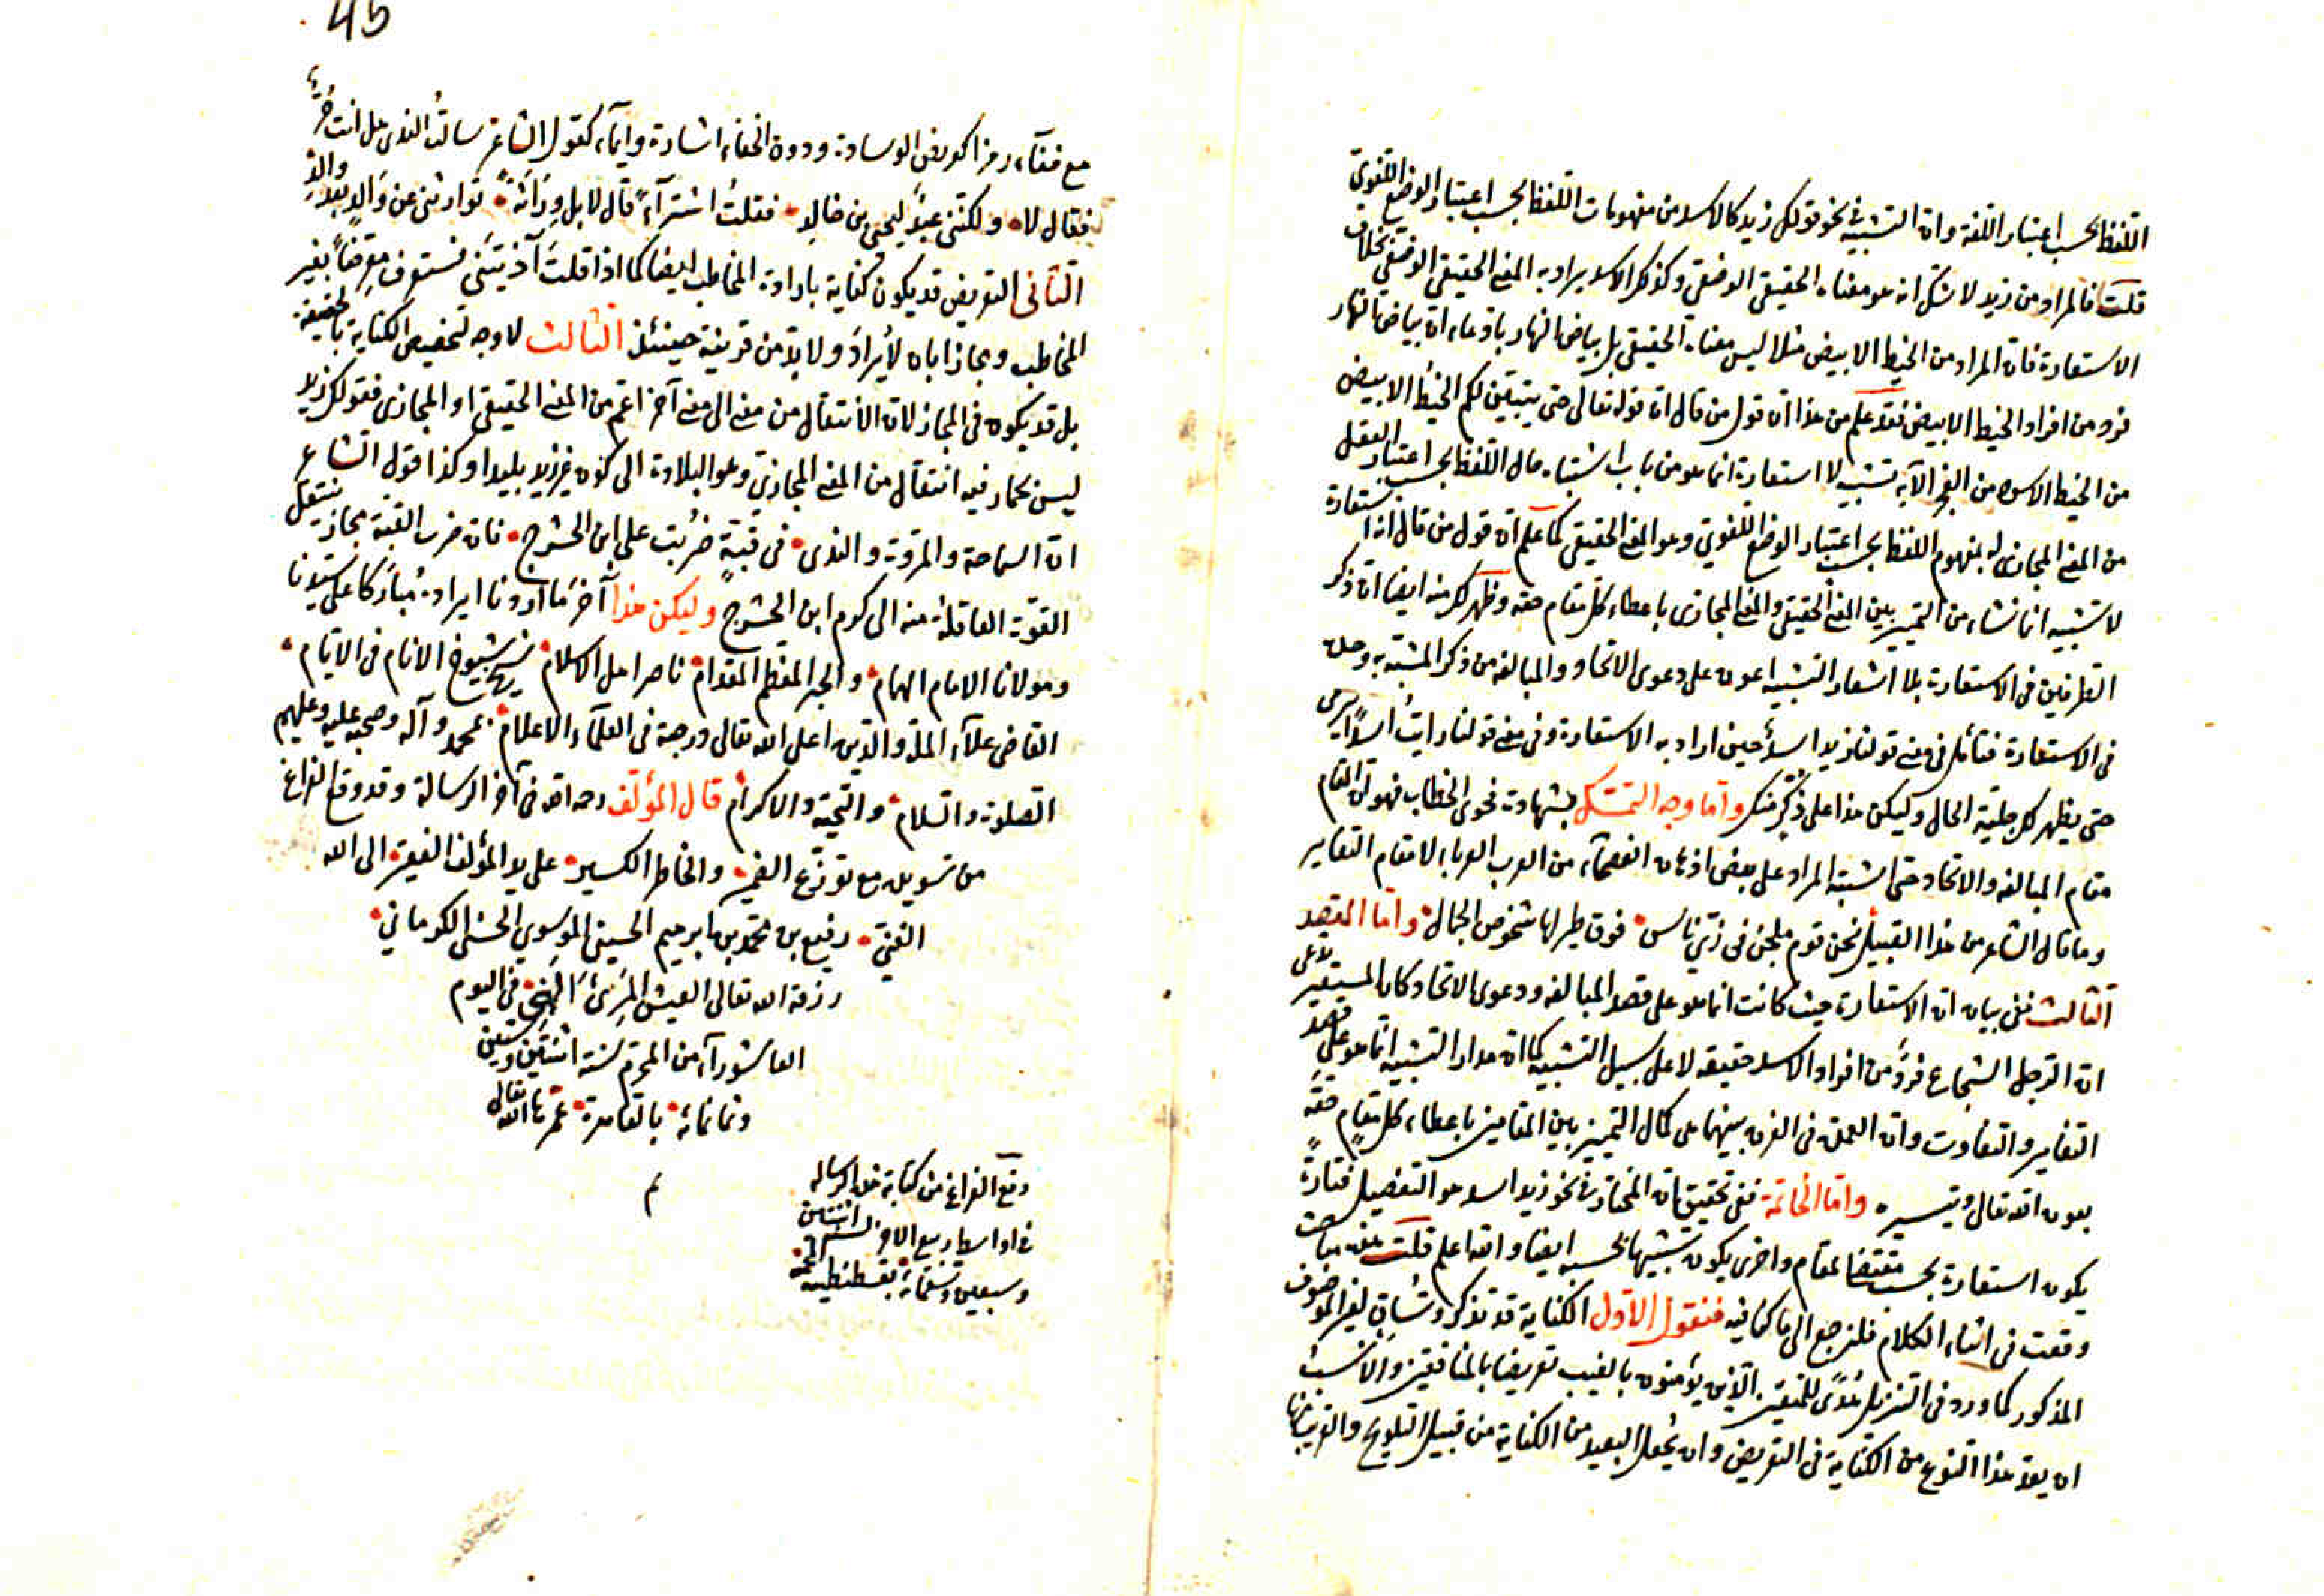 اللفظ بحسب اعتبار اللغة وان التشبيه في نحو قولك زيد كالاسد من مفهومات اللفظ بحسب اعتبار الوضع اللغوي
قلت فالمراد من زيد لا شك انه هو معناه الحقيقي الوضعي وكذلك الاسد يراد به المعنى الحقيقي الوضعي بخلاف
الاستعارة فان المراد من الخيط الابيض مثلا ليس معناه الحقيقي بل بياض النهار بادعاء ان بياض النهار
فرد من افراد الخيط الابيض فقد علم من هذا ان قول من قال ان قوله تعالى حتى يتبين لكم الخيط الابيض
من الخيط الاسود من الفجر الآية تشبيه لا استعارة انما هو من باب اشتباه حال اللفظ بحسب اعتبار العقل
من المعنى المجازى له بمفهوم اللفظ بحسب اعتبار الوضع اللغوي وهو المعنى الحقيقي كما علم ان قول من قال انه استعارة
لا تشبيه انما نشاء من التمييز بين المعنى الحقيقي والمعنى المجازى باعطاء كل مقام حقه وظهر لك منه ايضا ان ذكر
الطرفين في الاستعارة بلا اشعار التشبيه اعون على دعوى الاتحاد والمبالغة من ذكر المشبه به وحده
في الاستعارة فتأمل في معنى قولنا زيد اسد حين اراد به الاستعارة وفي معنى قولنا رايت اسدا يرمى
حتى يظهر لك جلية الحال وليكن هذا على ذكر منك واما وجه التمسك بشهادة فحوى الخطاب فهو ان المقام
مقام المبالغة والاتحاد حتى اشتبه المراد على بعض اذهان الفصحاء من العرب العرباء لا مقام التغاير
وما قال الشاعر من هذا القبيل نحن قوم ملجن في زي ناس فوق طير لها شخوص الجمال واما المقصد
الثالث ففي بيان ان الاستعارة حيث كانت انما هو على قصد المبالغة ودعوى الاتحاد كان المستعير يدعى
ان الرجل الشجاع فرد من افراد الاسد حقيقة لا على سبيل التشبيه كما ان مدار التشبيه انما هو على قصد
التغاير والتفاوت وان العمدة في الفرق بينهما على كمال التمييز بين المقامين باعطاء كل مقام حقه
بعون الله تعالى وتيسيره واما الخاتمة ففي تحقيق ان المختار في نحو زيد اسد هو التفصيل فتارة
يكون استعارة بحسب مقتضا لمقام واخرى يكون تشبيها بحسبه ايضا والله اعلم قلت هذه مباحث
وقعت في اثناء الكلام فلنرجع الى ما كنا فيه فنقول الاول الكناية قد تذكر وتساق لغير الموصوف
المذكور كما ورد في التنزيل هدى للمتقين الذين يؤمنون بالغيب تعريضا بالمنافقين والانسب
ان يعد هذا النوع من الكناية في التعريض وان يجعل البعيد من الكناية من قبيل التلويح والقريب منها
45
مع خفاء رمزا كعريض الوسادة ودون الخفاء اشارة وايماء كقول الشاعر سالت الندى هل انت حر
فقال لا ولكنني عبد ليحيى بن خالد فقلت اشتراء قال لا بل وراثة توارثنى عن والد بعد والد
الثانى التعريض قد يكون كناية بارادة المخاطب ايضا كما اذا قلت آذيتنى فستعرف معرضا بغير
المخاطب ومجازا بان لا يراد ولا بد من قرينة حينئذ الثالث لا وجه لتخصيص الكناية بالحقيقة
بل قد يكون في المجاز لان الانتقال من معنى الى معنى آخر اعم من المعنى الحقيقي او المجازى فقولك زيد
ليس بحمار فيه انتقال من المعنى المجازي وهو البلادة الى كون غير زيد بليدا وكذا قول الشاعر
ان السماحة والمروة والندى في قبة ضربت على ابن الحشرج فان ضرب القبة مجاز ينتقل
القوة العاقلة منه الى كرم ابن الحشرج وليكن هذا آخر ما اردنا ايراده مباركا على سيدنا
ومولانا الامام الهمام والحبر المعظم المقدام ناصر اهل الاسلام شيخ شيوخ الانام في الايام
القاضى علاء الملة والدين اعلى الله تعالى درجته في العلماء الاعلام بمحمد وآله وصحبه عليه وعليهم
الصلوة والسلام والتحية والاكرام قال المؤلف رحمه الله في آخر الرسالة وقد وقع الفراغ
من تسويده مع توزع الضمير والخاطر الكسير على يد المؤلف الفقير الى الله
الغني رفيع بن محمد بن ابرهيم الحسيني الموسوي الحسنى الكرماني
رزقه الله تعالى العيش المرئ الهنئ في اليوم
العاشوراء من المحرم سنة اثنتين وستين
وثمانمائة بالقاهرة عمرها الله تعالى
م
وقع الفراغ من كتابة هذه الرسالة
في اواسط ربيع الاخر لسنة اثنتين
وسبعين وتسعمائة بقسطنطينية المحمية